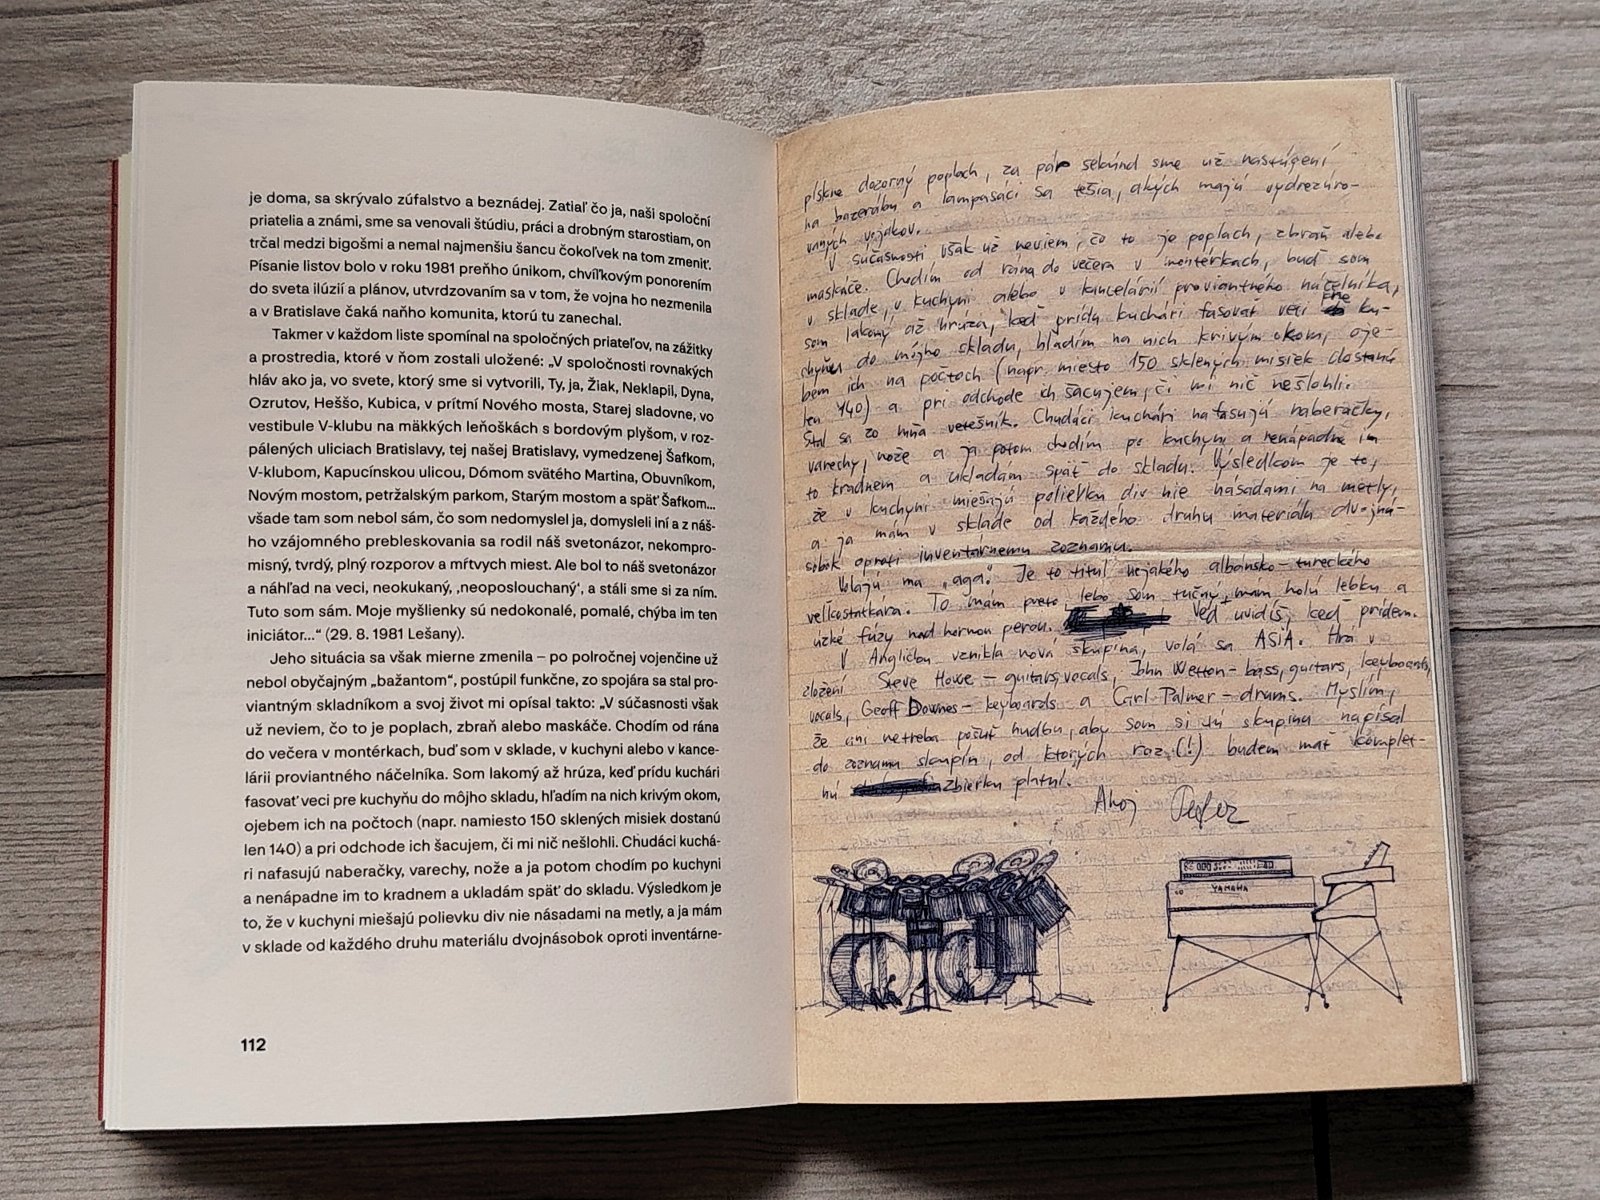 je doma, sa skrývalo zúfalstvo a beznádej. Zatiaľ čo ja, naši spoloční
priatelia a známi, sme sa venovali štúdiu, práci a drobným starostiam, on
trčal medzi bigošmi a nemal najmenšiu šancu čokoľvek na tom zmeniť.
Písanie listov bolo v roku 1981 preňho únikom, chvíľkovým ponorením
do sveta ilúzií a plánov, utvrdzovaním sa v tom, že vojna ho nezmenila
a v Bratislave čaká naňho komunita, ktorú tu zanechal.
Takmer v každom liste spomínal na spoločných priateľov, na zážitky
a prostredia, ktoré v ňom zostali uložené: „V spoločnosti rovnakých
hláv ako ja, vo svete, ktorý sme si vytvorili, Ty, ja, Žiak, Neklapil, Dyna,
Ozrutov, Heššo, Kubica, v prítmí Nového mosta, Starej sladovne, vo
vestibule V-klubu na mäkkých leňoškách s bordovým plyšom, v roz-
pálených uliciach Bratislavy, tej našej Bratislavy, vymedzenej Šafkom,
V-klubom, Kapucínskou ulicou, Dómom svätého Martina, Obuvníkom,
Novým mostom, petržalským parkom, Starým mostom a späť Šafkom...
všade tam som nebol sám, čo som nedomyslel ja, domysleli iní a z náš-
ho vzájomného prebleskovania sa rodil náš svetonázor, nekompro-
misný, tvrdý, plný rozporov a mŕtvych miest. Ale bol to náš svetonázor
a náhľad na veci, neokukaný, ‚neoposlouchaný‘, a stáli sme si za ním.
Tuto som sám. Moje myšlienky sú nedokonalé, pomalé, chýba im ten
iniciátor...“ (29. 8. 1981 Lešany).
Jeho situácia sa však mierne zmenila – po polročnej vojenčine už
nebol obyčajným „bažantom“, postúpil funkčne, zo spojára sa stal pro-
viantným skladníkom a svoj život mi opísal takto: „V súčasnosti však
už neviem, čo to je poplach, zbraň alebo maskáče. Chodím od rána
do večera v montérkach, buď som v sklade, v kuchyni alebo v kance-
lárii proviantného náčelníka. Som lakomý až hrúza, keď prídu kuchári
fasovať veci pre kuchyňu do môjho skladu, hľadím na nich krivým okom,
ojebem ich na počtoch (napr. namiesto 150 sklených misiek dostanú
len 140) a pri odchode ich šacujem, či mi nič nešlohli. Chudáci kuchá-
ri nafasujú naberačky, varechy, nože a ja potom chodím po kuchyni
a nenápadne im to kradnem a ukladám späť do skladu. Výsledkom je
to, že v kuchyni miešajú polievku div nie násadami na metly, a ja mám
v sklade od každého druhu materiálu dvojnásobok oproti inventárne-
112
pískne dozorný poplach, za pár sekúnd sme už nastúpení
na bazeráku a lampasáci sa tešia, akých majú vydrezúro-
vaných vojakov.
V súčasnosti však už neviem, čo to je poplach, zbraň alebo
maskáče. Chodím od rána do večera v montérkach, buď som
v sklade, v kuchyni alebo v kancelárii proviantného náčelníka,
som lakomý až hrúza, keď prídu kuchári fasovať veci pre ku-
chyňu do môjho skladu, hľadím na nich krivým okom, oje-
bem ich na počtoch (napr. miesto 150 sklených misiek dostanú
len 140) a pri odchode ich šacujem, či mi nič nešlohli.
Stal sa zo mňa vetešník. Chudáci kuchári nafasujú naberačky,
varechy, nože a ja potom chodím po kuchyni a nenápadne im
to kradnem a ukladám späť do skladu. Výsledkom je to,
že v kuchyni miešajú polievku div nie násadami na metly,
a ja mám v sklade od každého druhu materiálu dvojná-
sobok oproti inventárnemu zoznamu.
Volajú ma „aga“. Je to titul nejakého albánsko-tureckého
veľkostatkára. To mám preto lebo som tučný, mám holú lebku a
úzke fúzy nad hornou perou. Veď uvidíš, keď prídem.
V Anglicku vznikla nová skupina, volá sa ASIA. Hrá v
zložení Steve Howe – guitars, vocals, John Wetton – bass, guitars, keyboards,
vocals, Geoff Downes – keyboards a Carl Palmer – drums. Myslím,
že ani netreba počuť hudbu, aby som si tú skupinu napísal
do zoznamu skupín, od ktorých raz (!) budem mať komplet-
nú zbierku platní.
Ahoj
YAMAHA